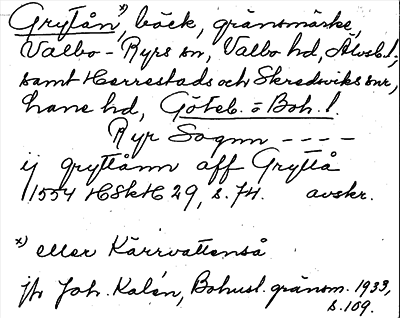 Grytån*), bäck, gränsmärke,
Valbo-Ryrs sn, Valbo hd, Älvsb. l.,
samt Herrestads och Skredsviks snr,
Lane hd, Göteb. o Boh. l.
Ryr Sognn - - - -
ij gryttånn aff Gryttå
1554 HSkH 29, s. 74. avskr.
*) eller Kärrvattenså
jfr Joh. Kalén, Bohusl. gränsm. 1933,
s. 109.